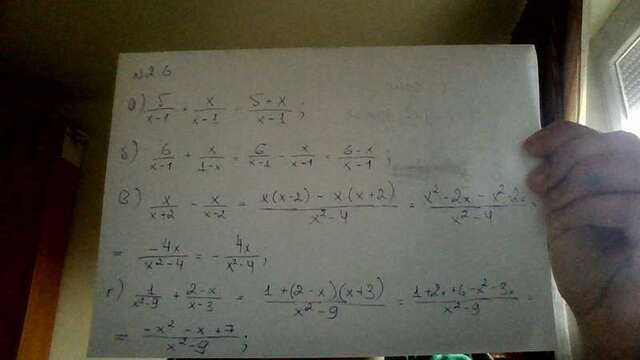 №26
а) 5/(x-1) + x/(x-1) = (5+x)/(x-1);
б) 6/(x-1) + x/(1-x) = 6/(x-1) - x/(x-1) = (6-x)/(x-1);
в) x/(x+2) - x/(x-2) = (x(x-2) - x(x+2))/(x²-4) = (x²-2x-x²-2x)/(x²-4) =
= -4x/(x²-4) = - 4x/(x²-4);
г) 1/(x²-9) + (2-x)/(x-3) = (1+(2-x)(x+3))/(x²-9) = (1+2x+6-x²-3x)/(x²-9) =
= (-x²-x+7)/(x²-9);